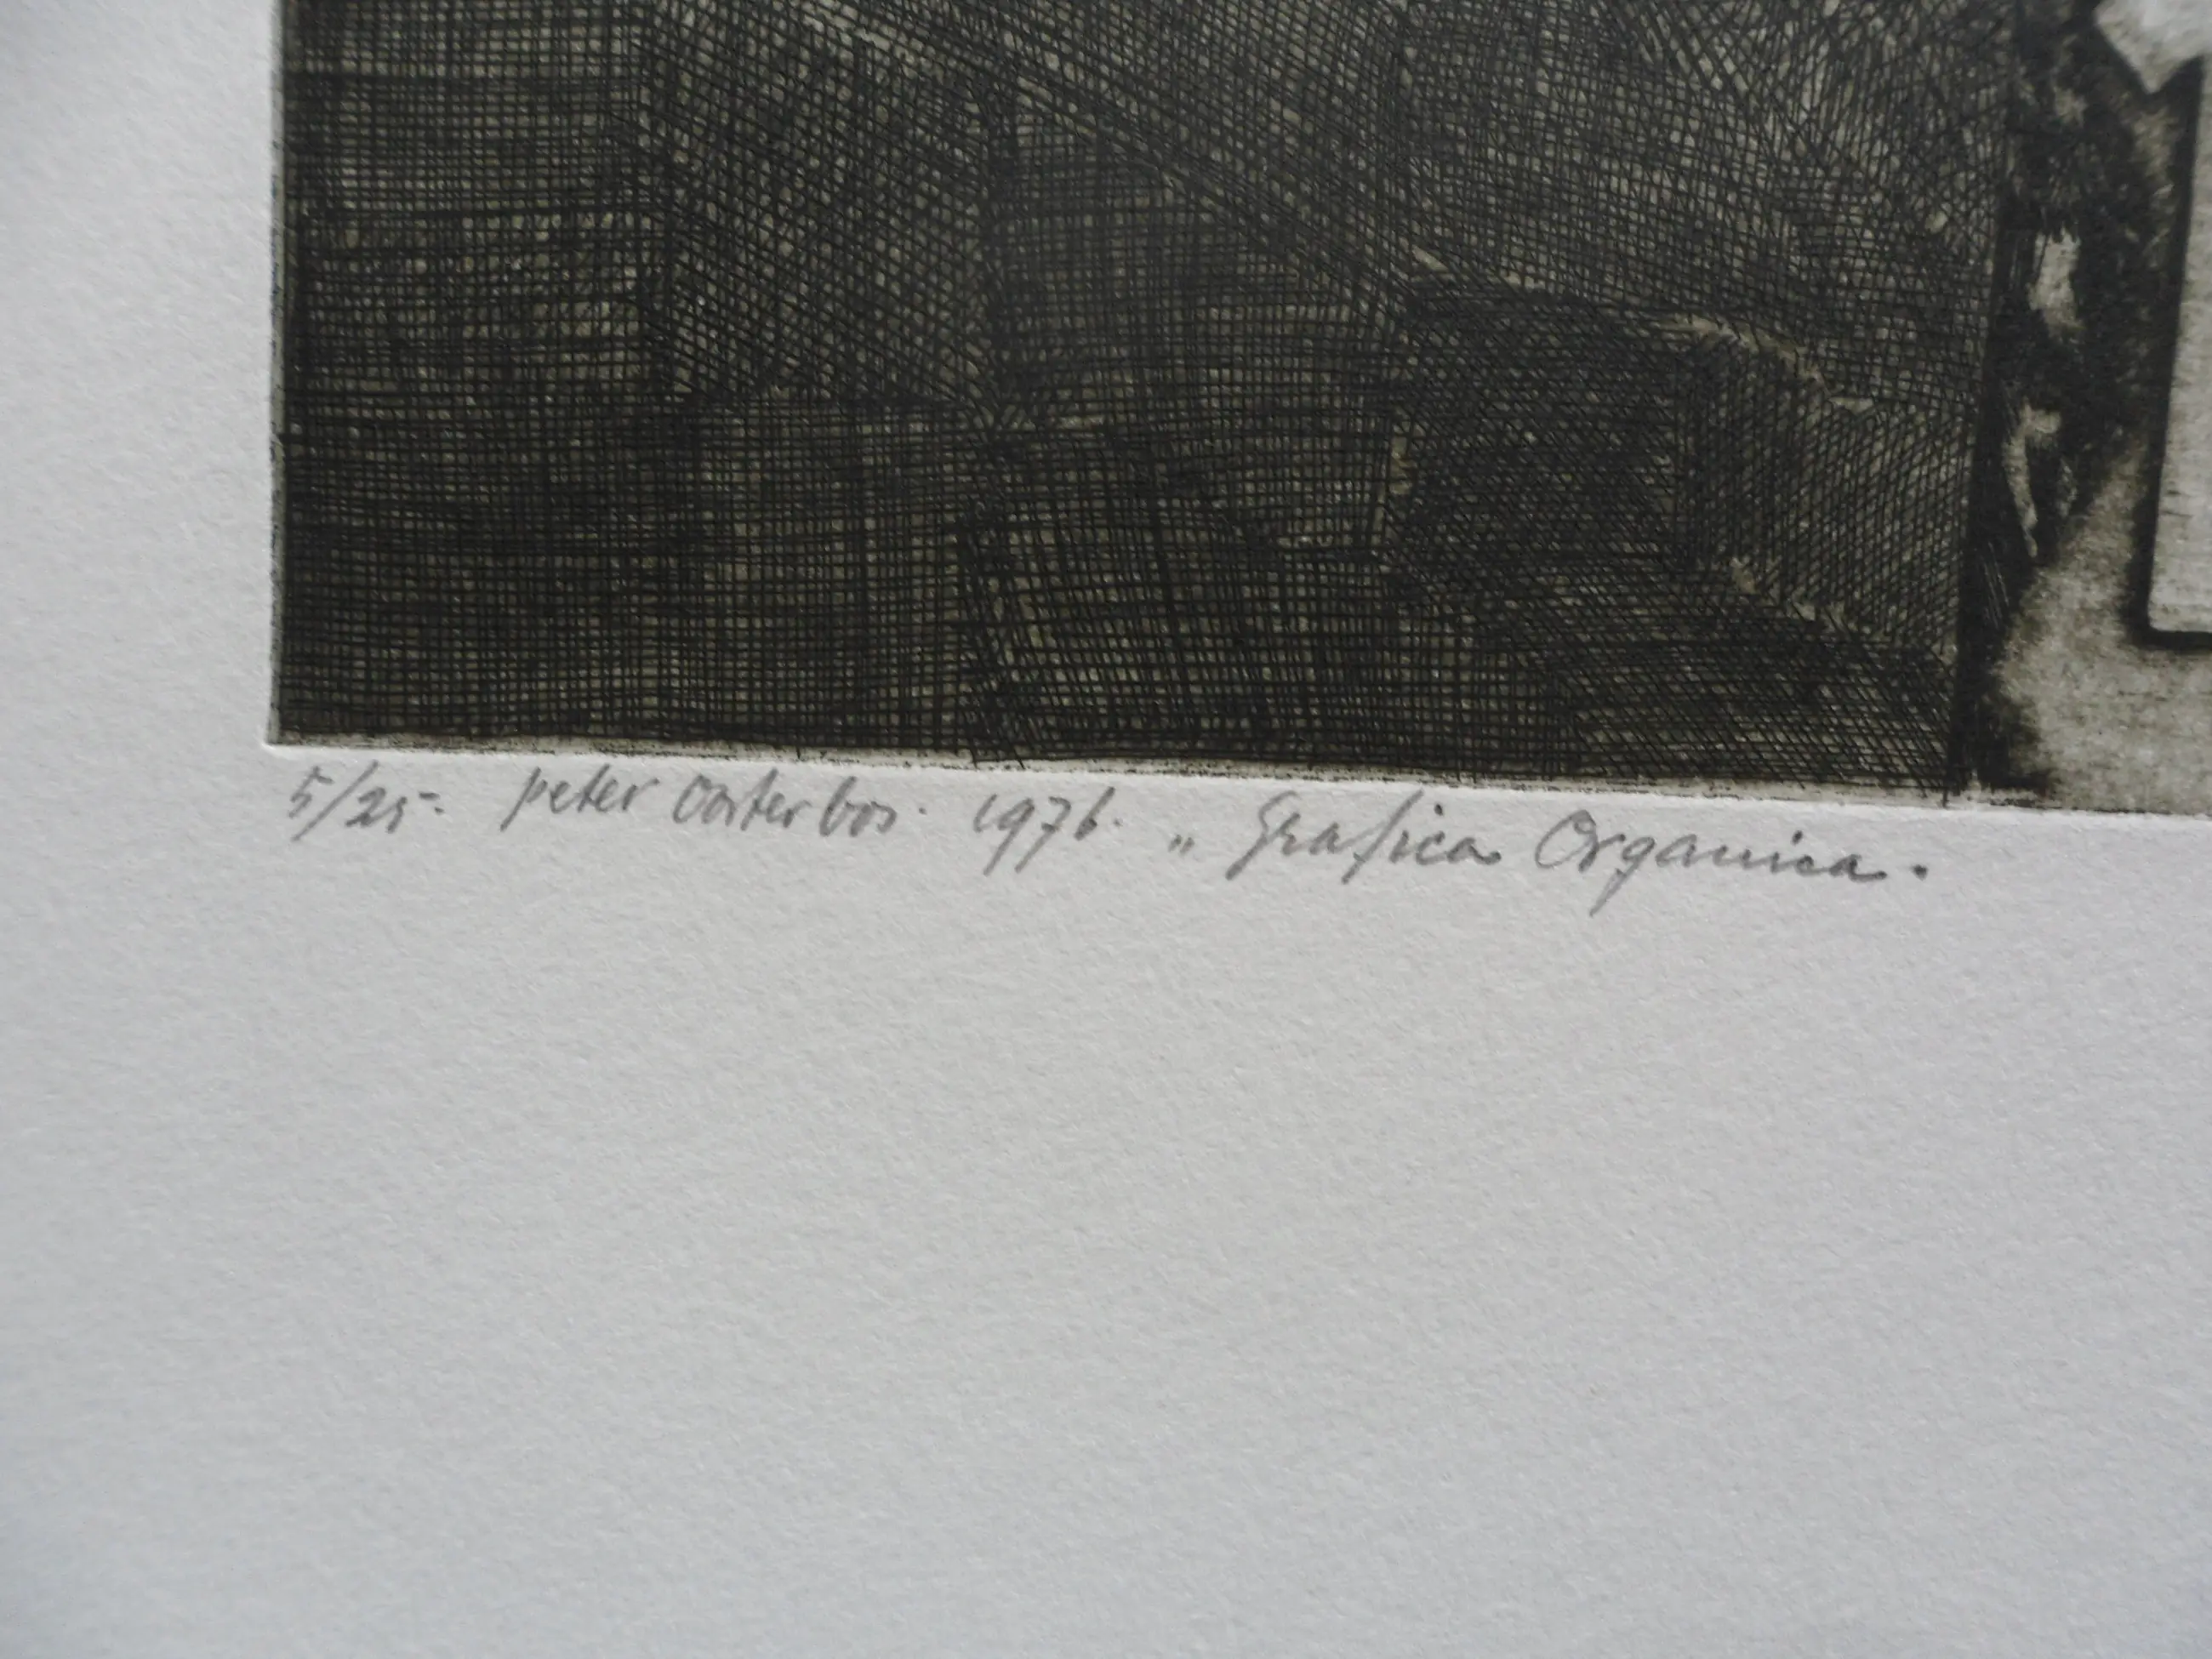 5/25- peter Oosterbos. 1976. „ Grafica Organica.